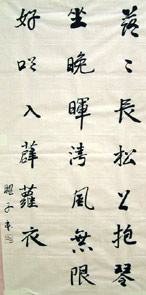 落〻長松下抱琴
坐晚暉清風無限
好吹入薜蘿衣